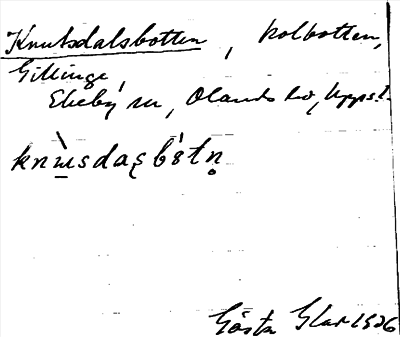 Knutsdalsbotten, kolbotten,
Gillinge,
Ekeby sn, Olands hd, Upps.l.
knɯ̀sdaʂbɞ́tn̥
Gösta
1926